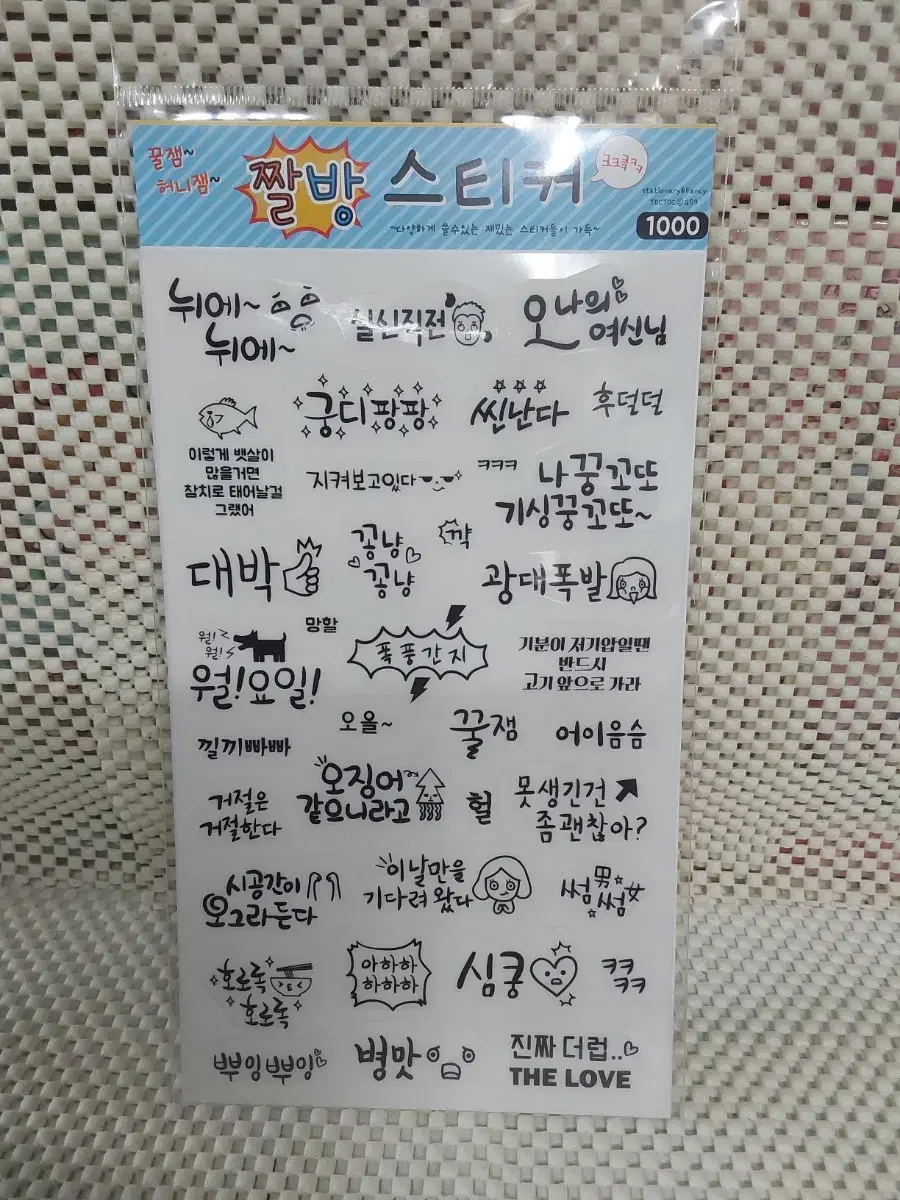 꿀잼~
허니잼~
짤방 스티커
ㅋㅋㅋㅋㅋ
Stationary&Fancy
TOCTOC@GS9
1000
~다양하게 쓸수있는 재밌는 스티커들이 가득~
뉘에~
뉘에~
실신직전
오 나의
여신님
궁디팡팡
씐난다
후덜덜
이렇게 뱃살이
많을거면
참치로 태어날걸
그랬어
지켜보고있다
ㅋㅋㅋ
나 꿍꼬또
기싱꿍꼬또~
대박
꽁냥
꽁냥
꺅
광대폭발
월!
월!
망할
월!요일!
폭풍간지
기분이 저기압일땐
반드시
고기 앞으로 가라
오올~
꿀잼
어이음슴
낄끼빠빠
거절은
거절한다
오징어~
같으니라고
헐
못생긴건
좀괜찮아?
시공간이
오그라든다
이날만을
기다려 왔다
썸男
썸女
호로록
호로록
아하하
하하하
심쿵
ㅋㅋ
ㅋㅋ
뿌잉뿌잉
병맛
진짜 더럽..
THE LOVE